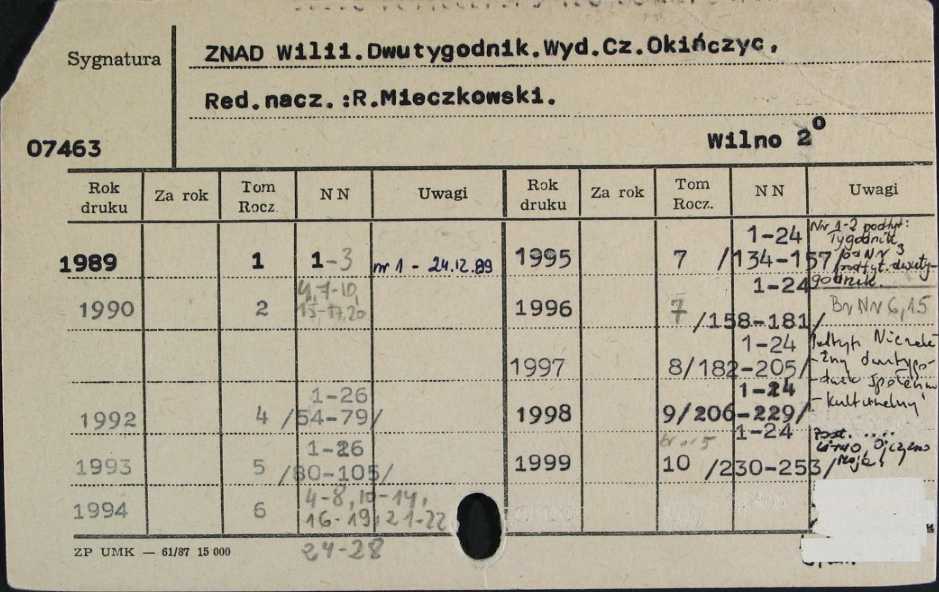 Sygnatura
ZNAD Wilii.Dwutygodnik.Wyd.Cz.Okińczyc.
Red.nacz.:R.Mieczkowski.
07463
Wilno 2°
Rok druku Za rok Tom Rocz. NN Uwagi Rok druku Za rok Tom Rocz. NN Uwagi
1989 1 1-3 nr 1 - 24.12.89
1990 2 4,7-10, 15-17,20
1992 4 1-26 /54-79/
1993 5 1-26 /80-105/
1994 6 4-8, 10-14, 16-19, 21-22
24-28
1995 7 1-24 /134-157/ Nr 1-2 podtyt: Tygodnik od Nr 3 podtyt. dwutygodnik.
1996 7 1-24 /158-181/ Br Nr 6,15
1997 8 1-24 /182-205/ Podtyt. Niezależny dwutygodnik społeczno-kulturalny
1998 9 1-24 /206-229/
1999 10 1-24 /230-253/
ZP UMK — 61/87 15 000